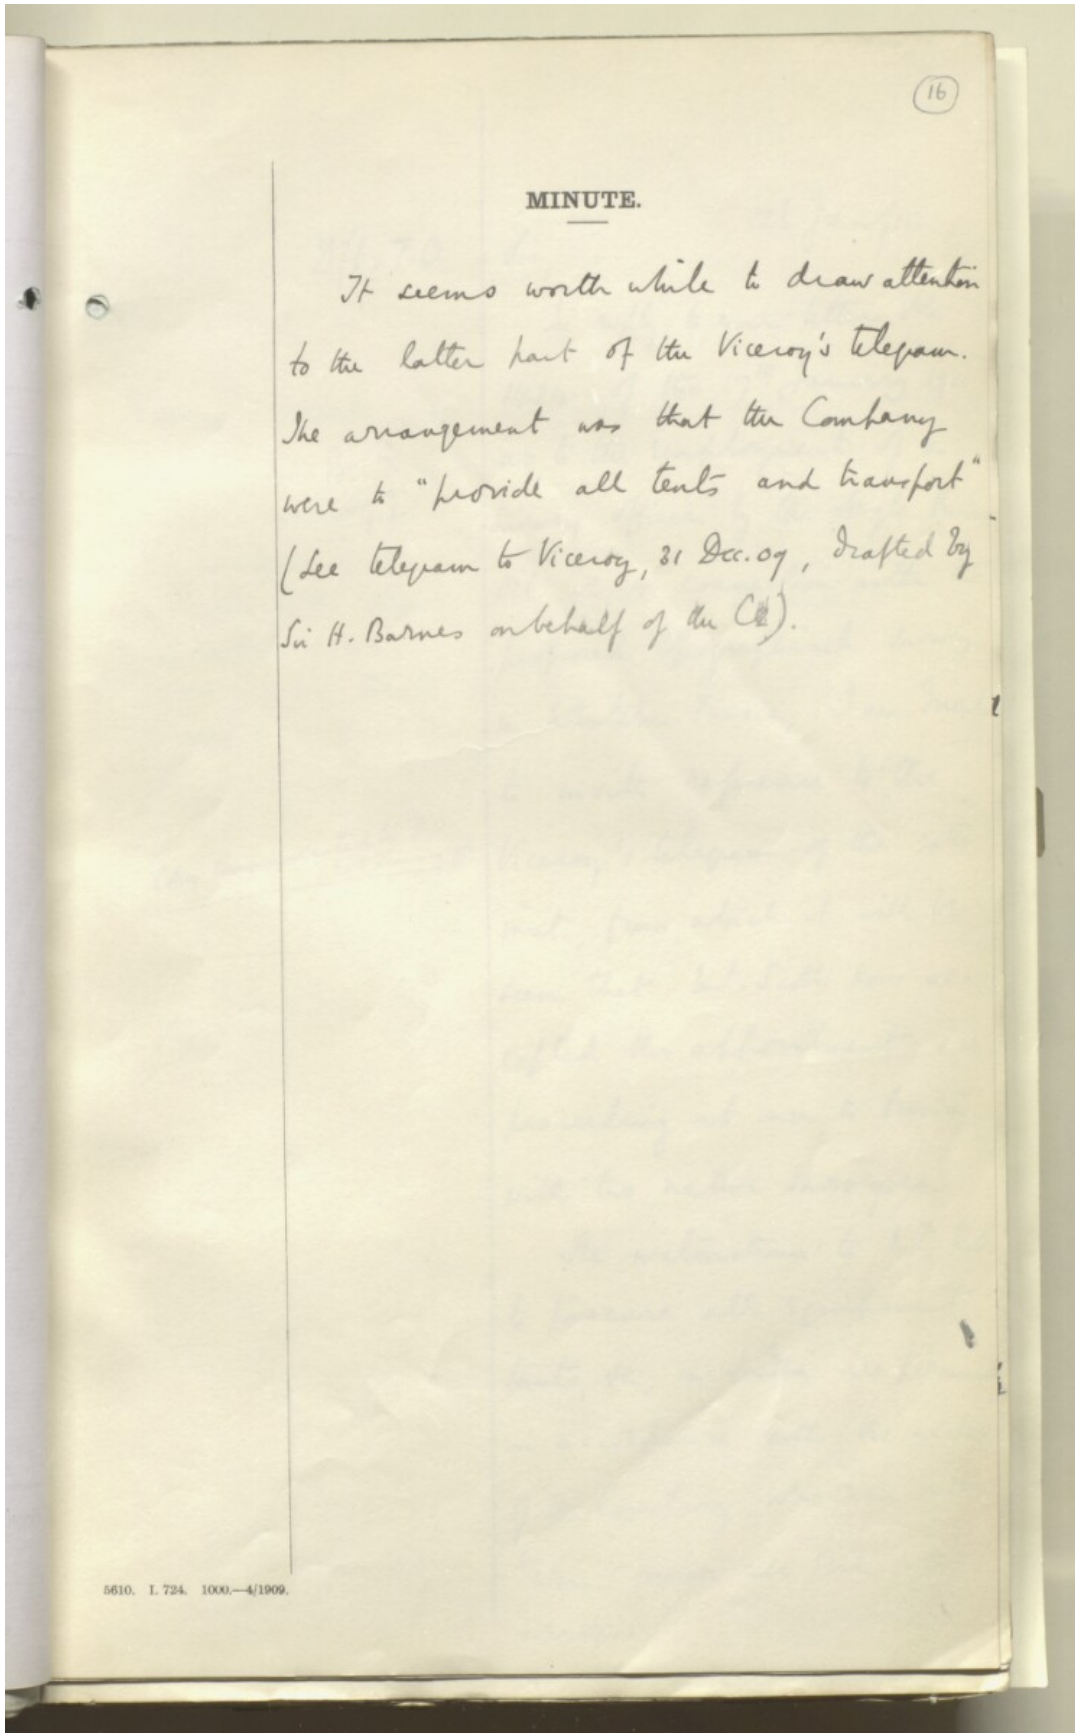 16
MINUTE.
It seems worth while to draw attention
to the latter part of the Viceroy's telegram.
The arrangement was that the Company
were to "provide all tents and transport"
(See telegram to Viceroy, 31 Dec. 09, drafted by
Sir H. Barnes on behalf of the
5610. I. 724. 1000.—4/1909.